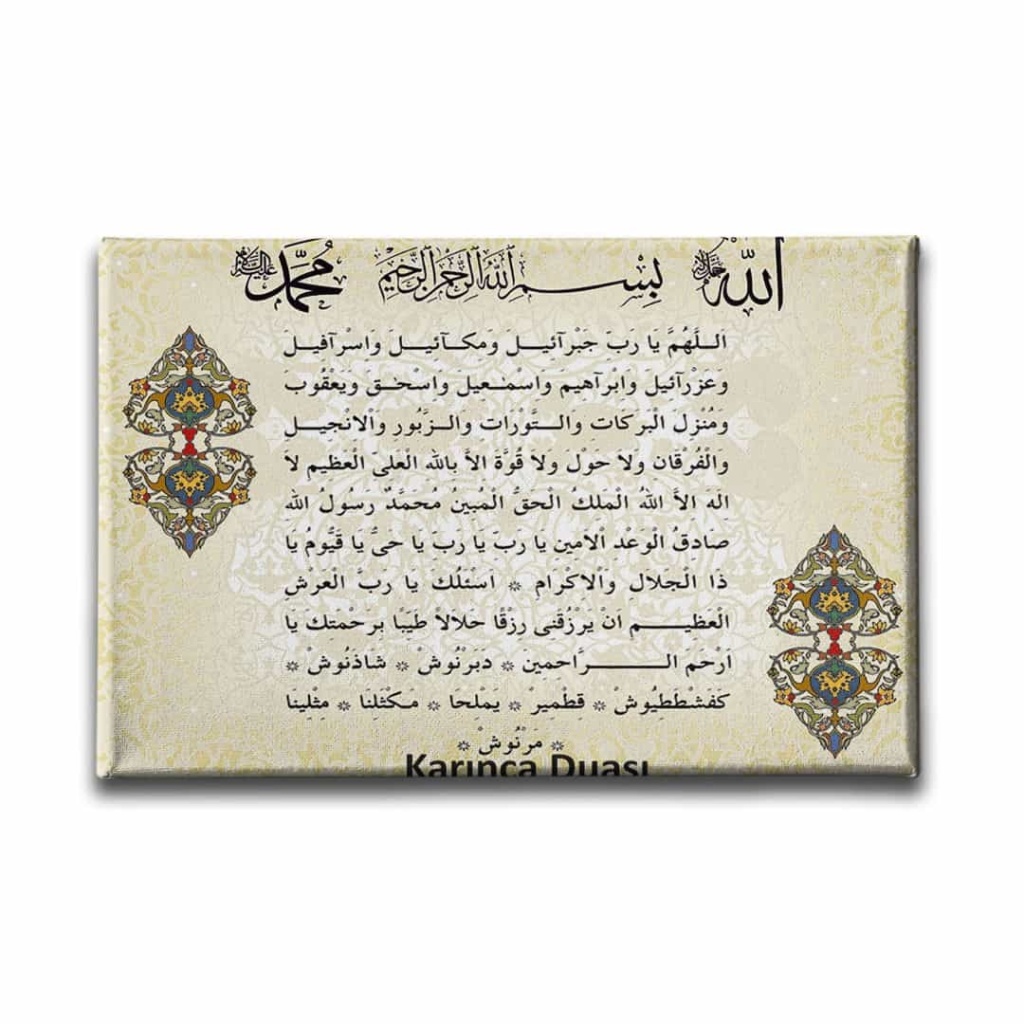 الله جل جلاله بسم الله الرحمن الرحيم محمد عليه السلام
اَللَّهُمَّ يَا رَبَّ جَبْرَآئيلَ وَمكَآئيلَ وَاسْرَآفيلَ
وَعَزْرَآئيلَ وَابْرَآهيمَ وَاسْمَعيلَ وَاسْحَقَ وَيَعْقُوبَ
وَمُنْزِلَ الْبَرَكَاتِ وَالتَّوْرَاتِ وَالزَّبُورِ وَالْانْجيلِ
وَالْفُرْقَانِ وَلاَ حَوْلَ وَلاَ قُوَّةَ الاَّ بِاللهِ الْعَلىِّ الْعَظيمِ لاَ
الَهَ الاَّ اللهُ الْمَلكُ الْحَقُّ الْمُبينُ مُحَمَّدٌ رَسُولُ اللهِ
صَادِقُ الْوَعْدِ الْاَمينِ يَا رَبِّ يَا رَبِّ يَا حَىُّ يَا قَيُّومُ يَا
ذَا الْجَلَالِ وَالْاكْرَامِ ۞ اَسْئَلُكَ يَا رَبَّ الْعَرْشِ
الْعَظيمِ اَنْ يَرْزُقَنى رِزْقًا حَلَالاً طَيِّبًا بِرَحْمَتِكَ يَا
اَرْحَمَ الرَّاحِمينَ ۞ دَبَرْنُوشْ ۞ شَاذَنُوشْ ۞
كَفَشْطَطَيُوشْ ۞ قِطْميرْ ۞ يَمْلِحَا ۞ مَكْثَلِنَا ۞ مِثْلِينَا
۞ مَرْنُوشْ ۞
Karınca Duası